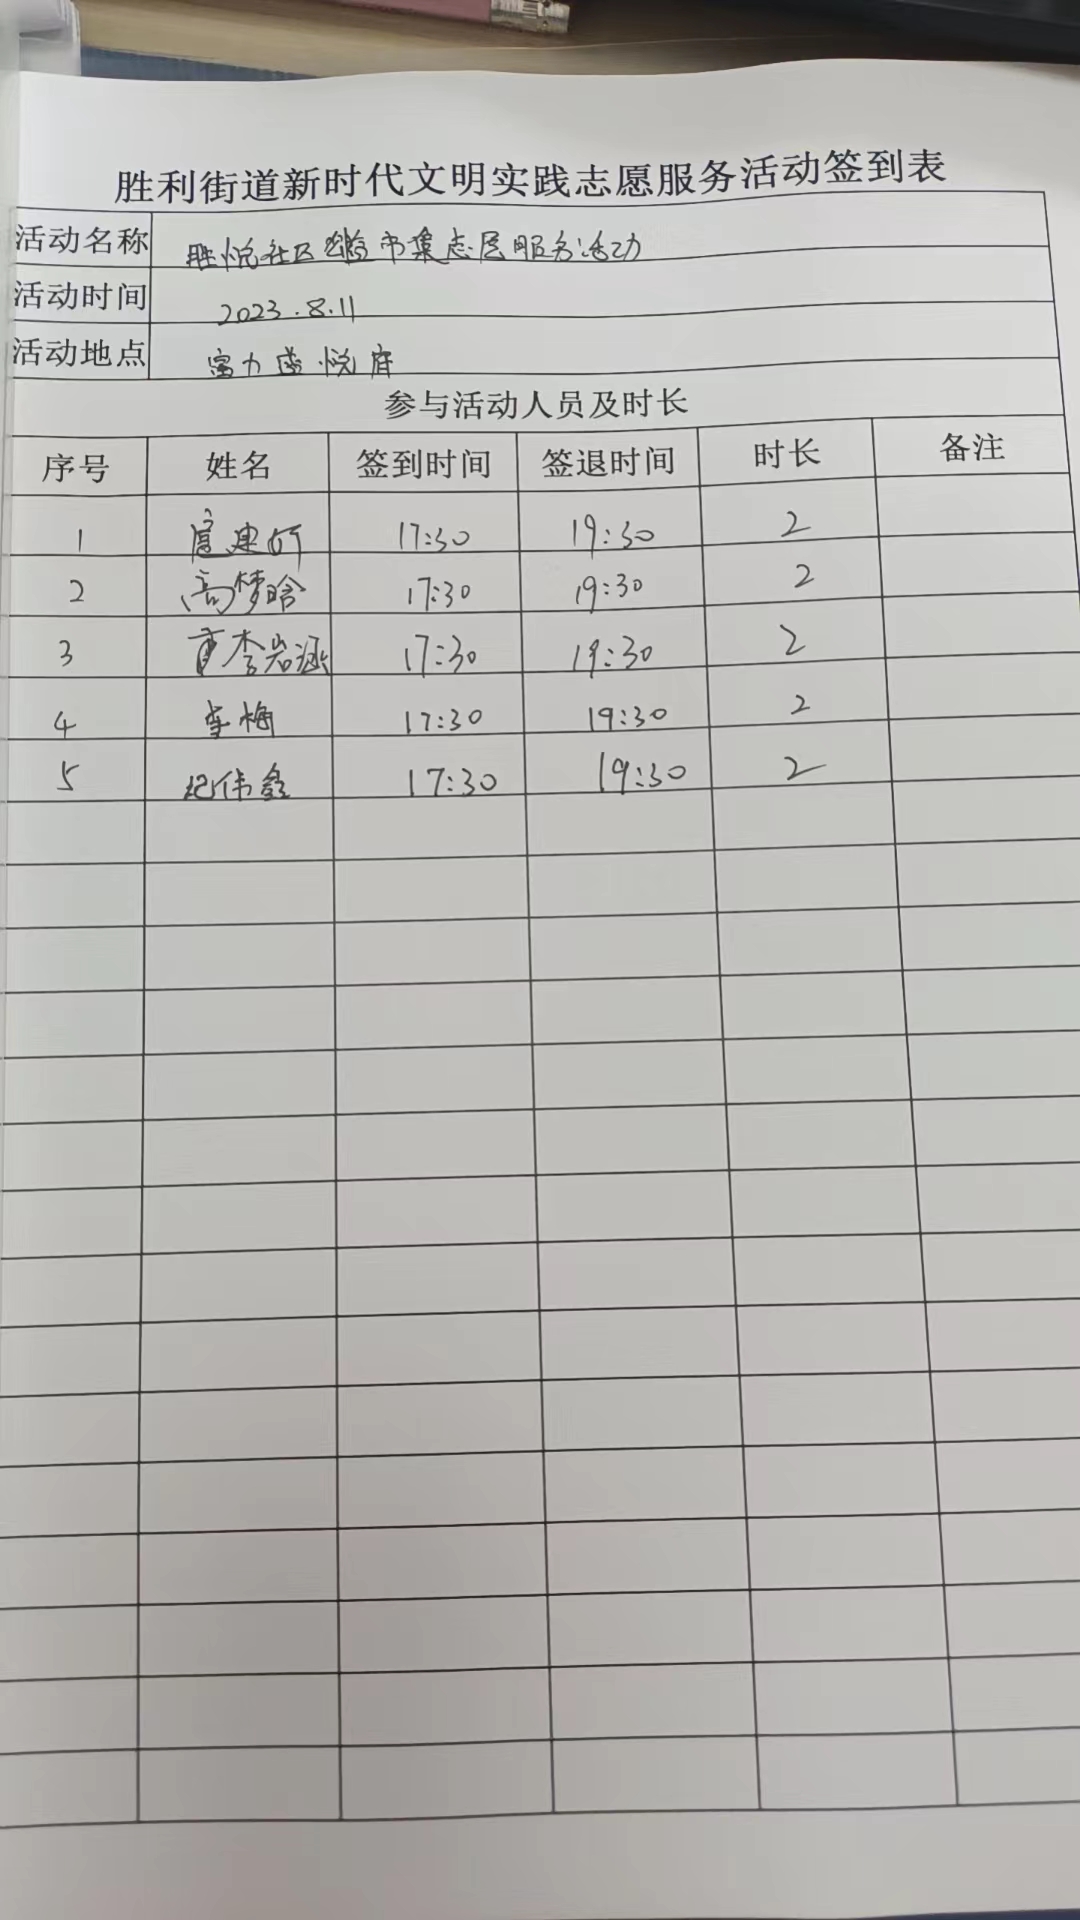 胜利街道新时代文明实践志愿服务活动签到表
活动名称 胜悦社区公益市集志愿服务活动
活动时间 2023.8.11
活动地点 富力盛悦府
参与活动人员及时长
序号 姓名 签到时间 签退时间 时长 备注
1 17:30 19:30 2
2 高梦晗 17:30 19:30 2
3 李岩涵 17:30 19:30 2
4 李梅 17:30 19:30 2
5 纪伟鑫 17:30 19:30 2